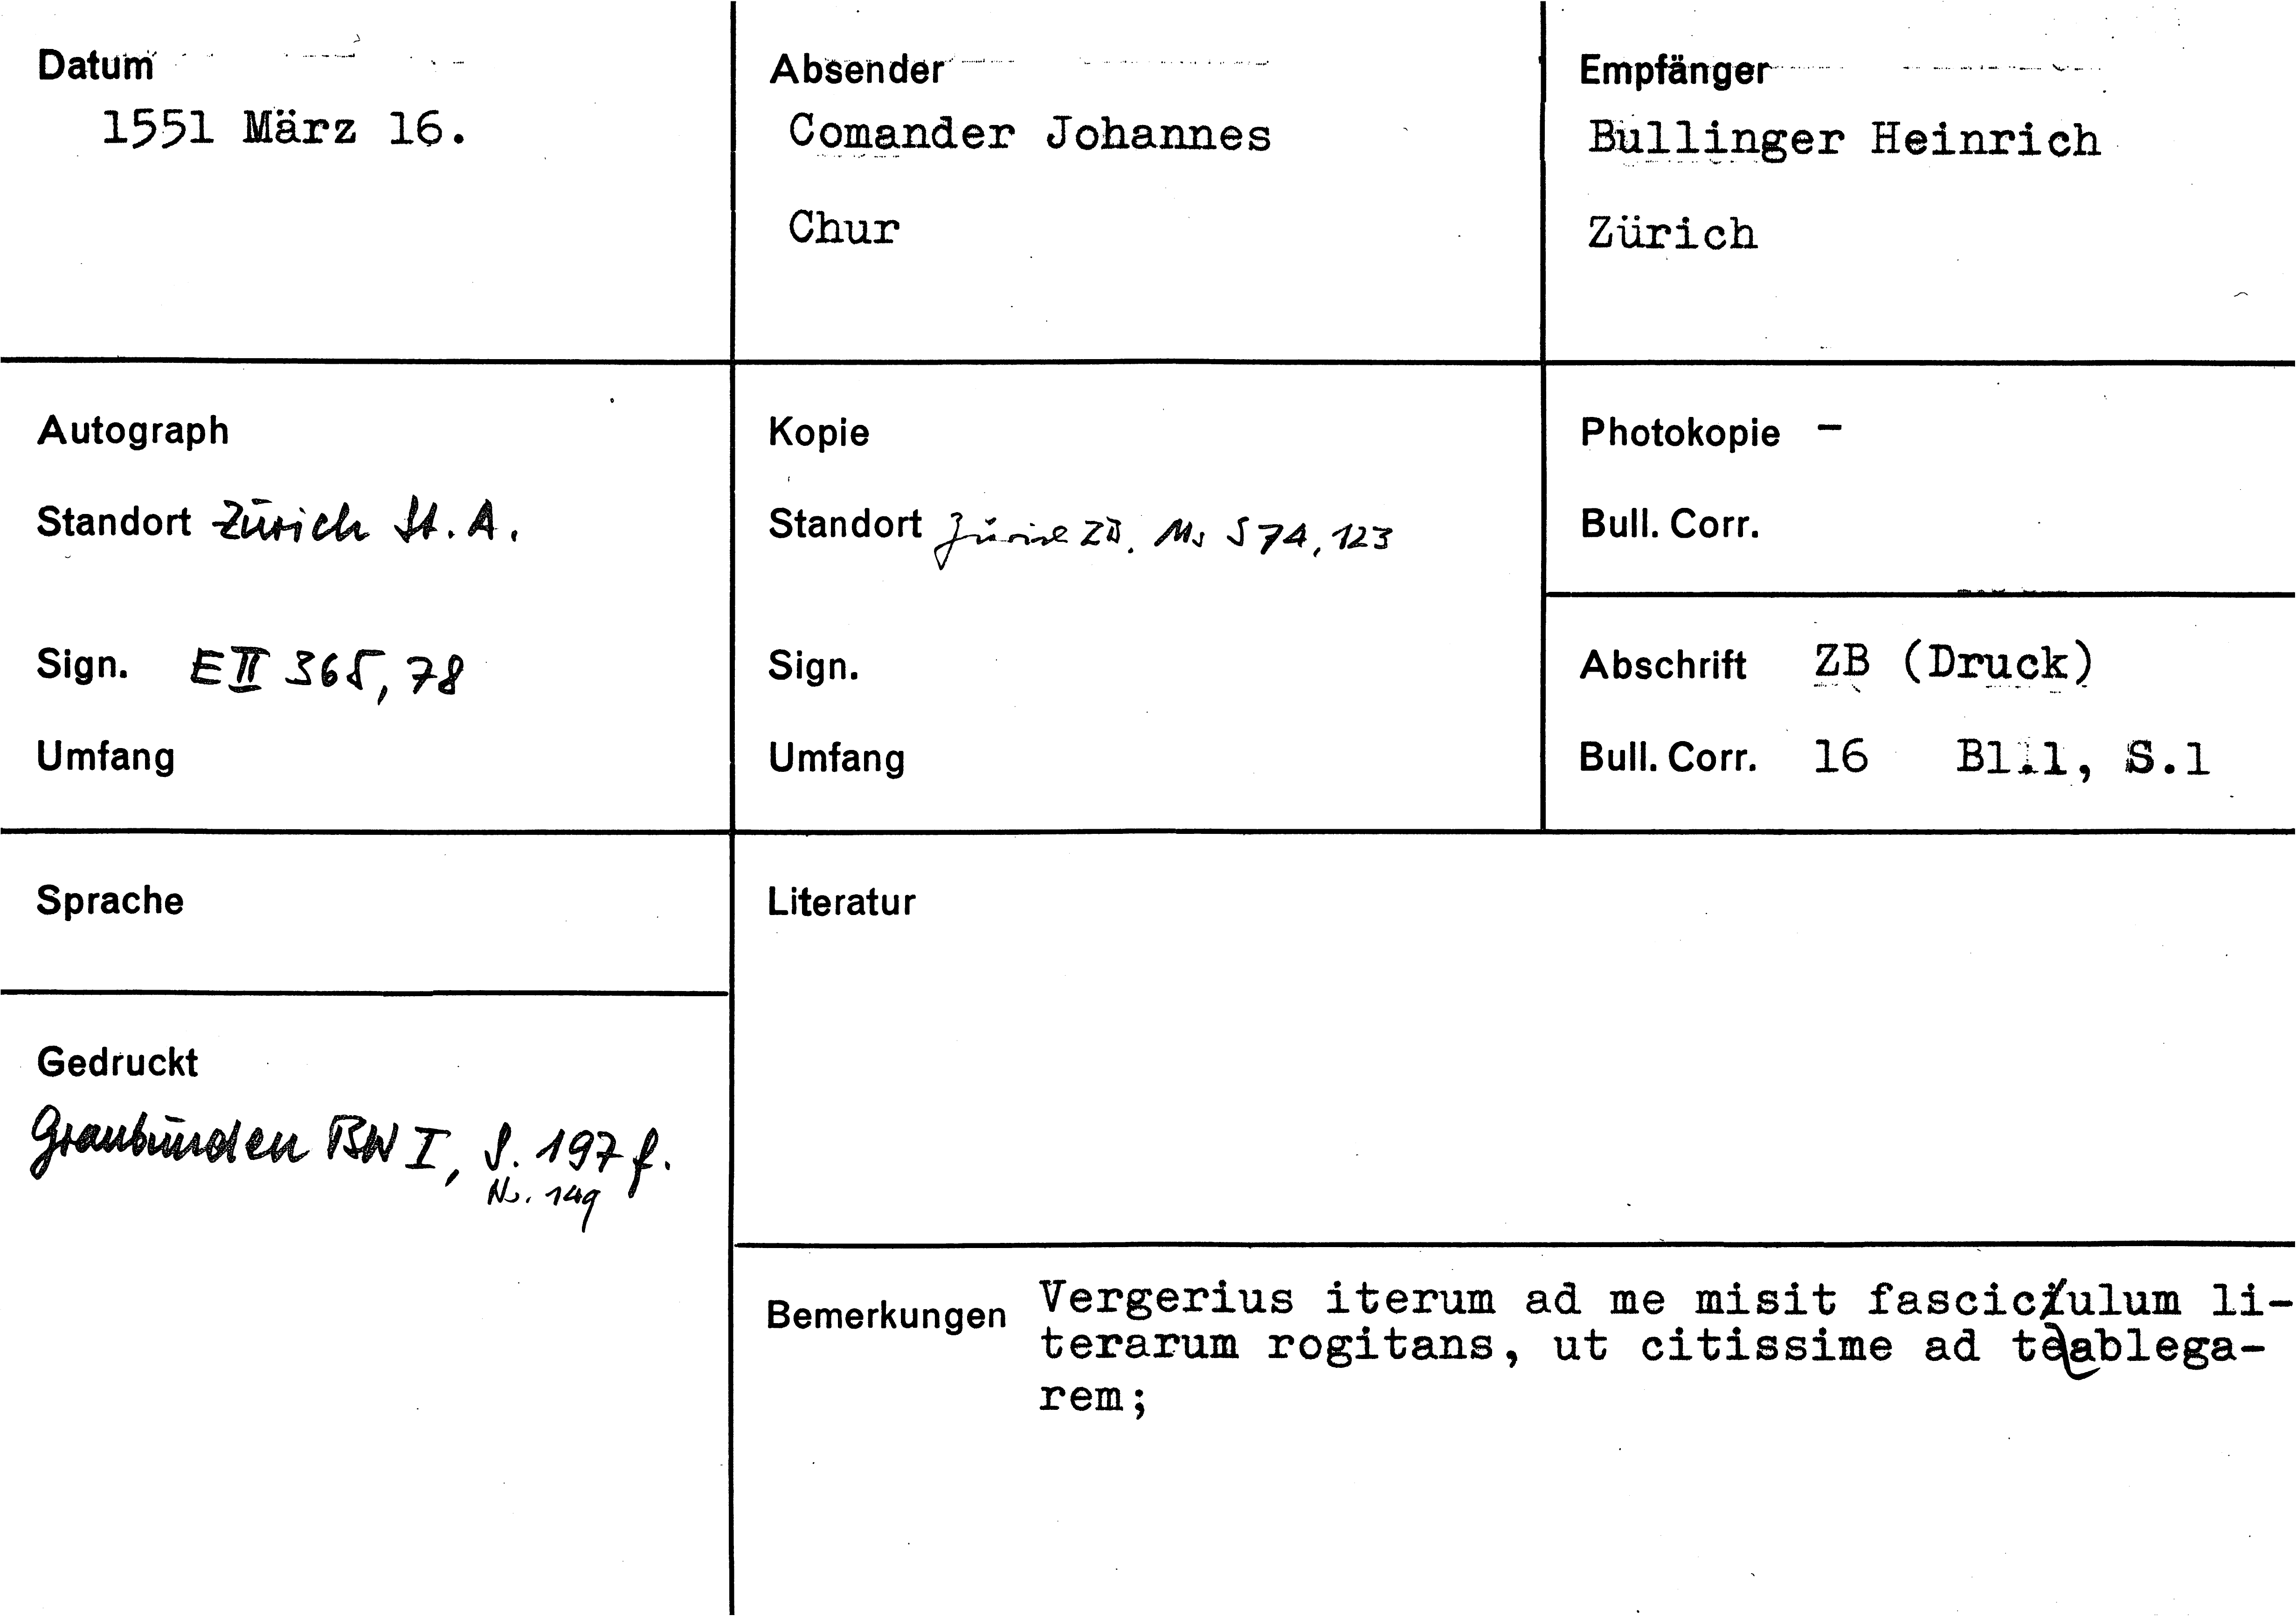 Datum
1551 März 16.
Absender
Comander Johannes
Chur
Empfänger
Bullinger Heinrich
Zürich
Autograph
Standort Zürich St. A.
Sign. E II 365, 78
Umfang
Kopie
Standort Zürich ZB, Ms S 74, 123
Sign.
Umfang
Photokopie -
Bull. Corr.
Abschrift ZB (Druck)
Bull. Corr. 16 Bl.1, S.1
Sprache
Gedruckt
Graubünden BW I, S. 197 f.
No. 149
Literatur
Bemerkungen Vergerius iterum ad me misit fasciculum li-
terarum rogitans, ut citissime ad te ablega-
rem;